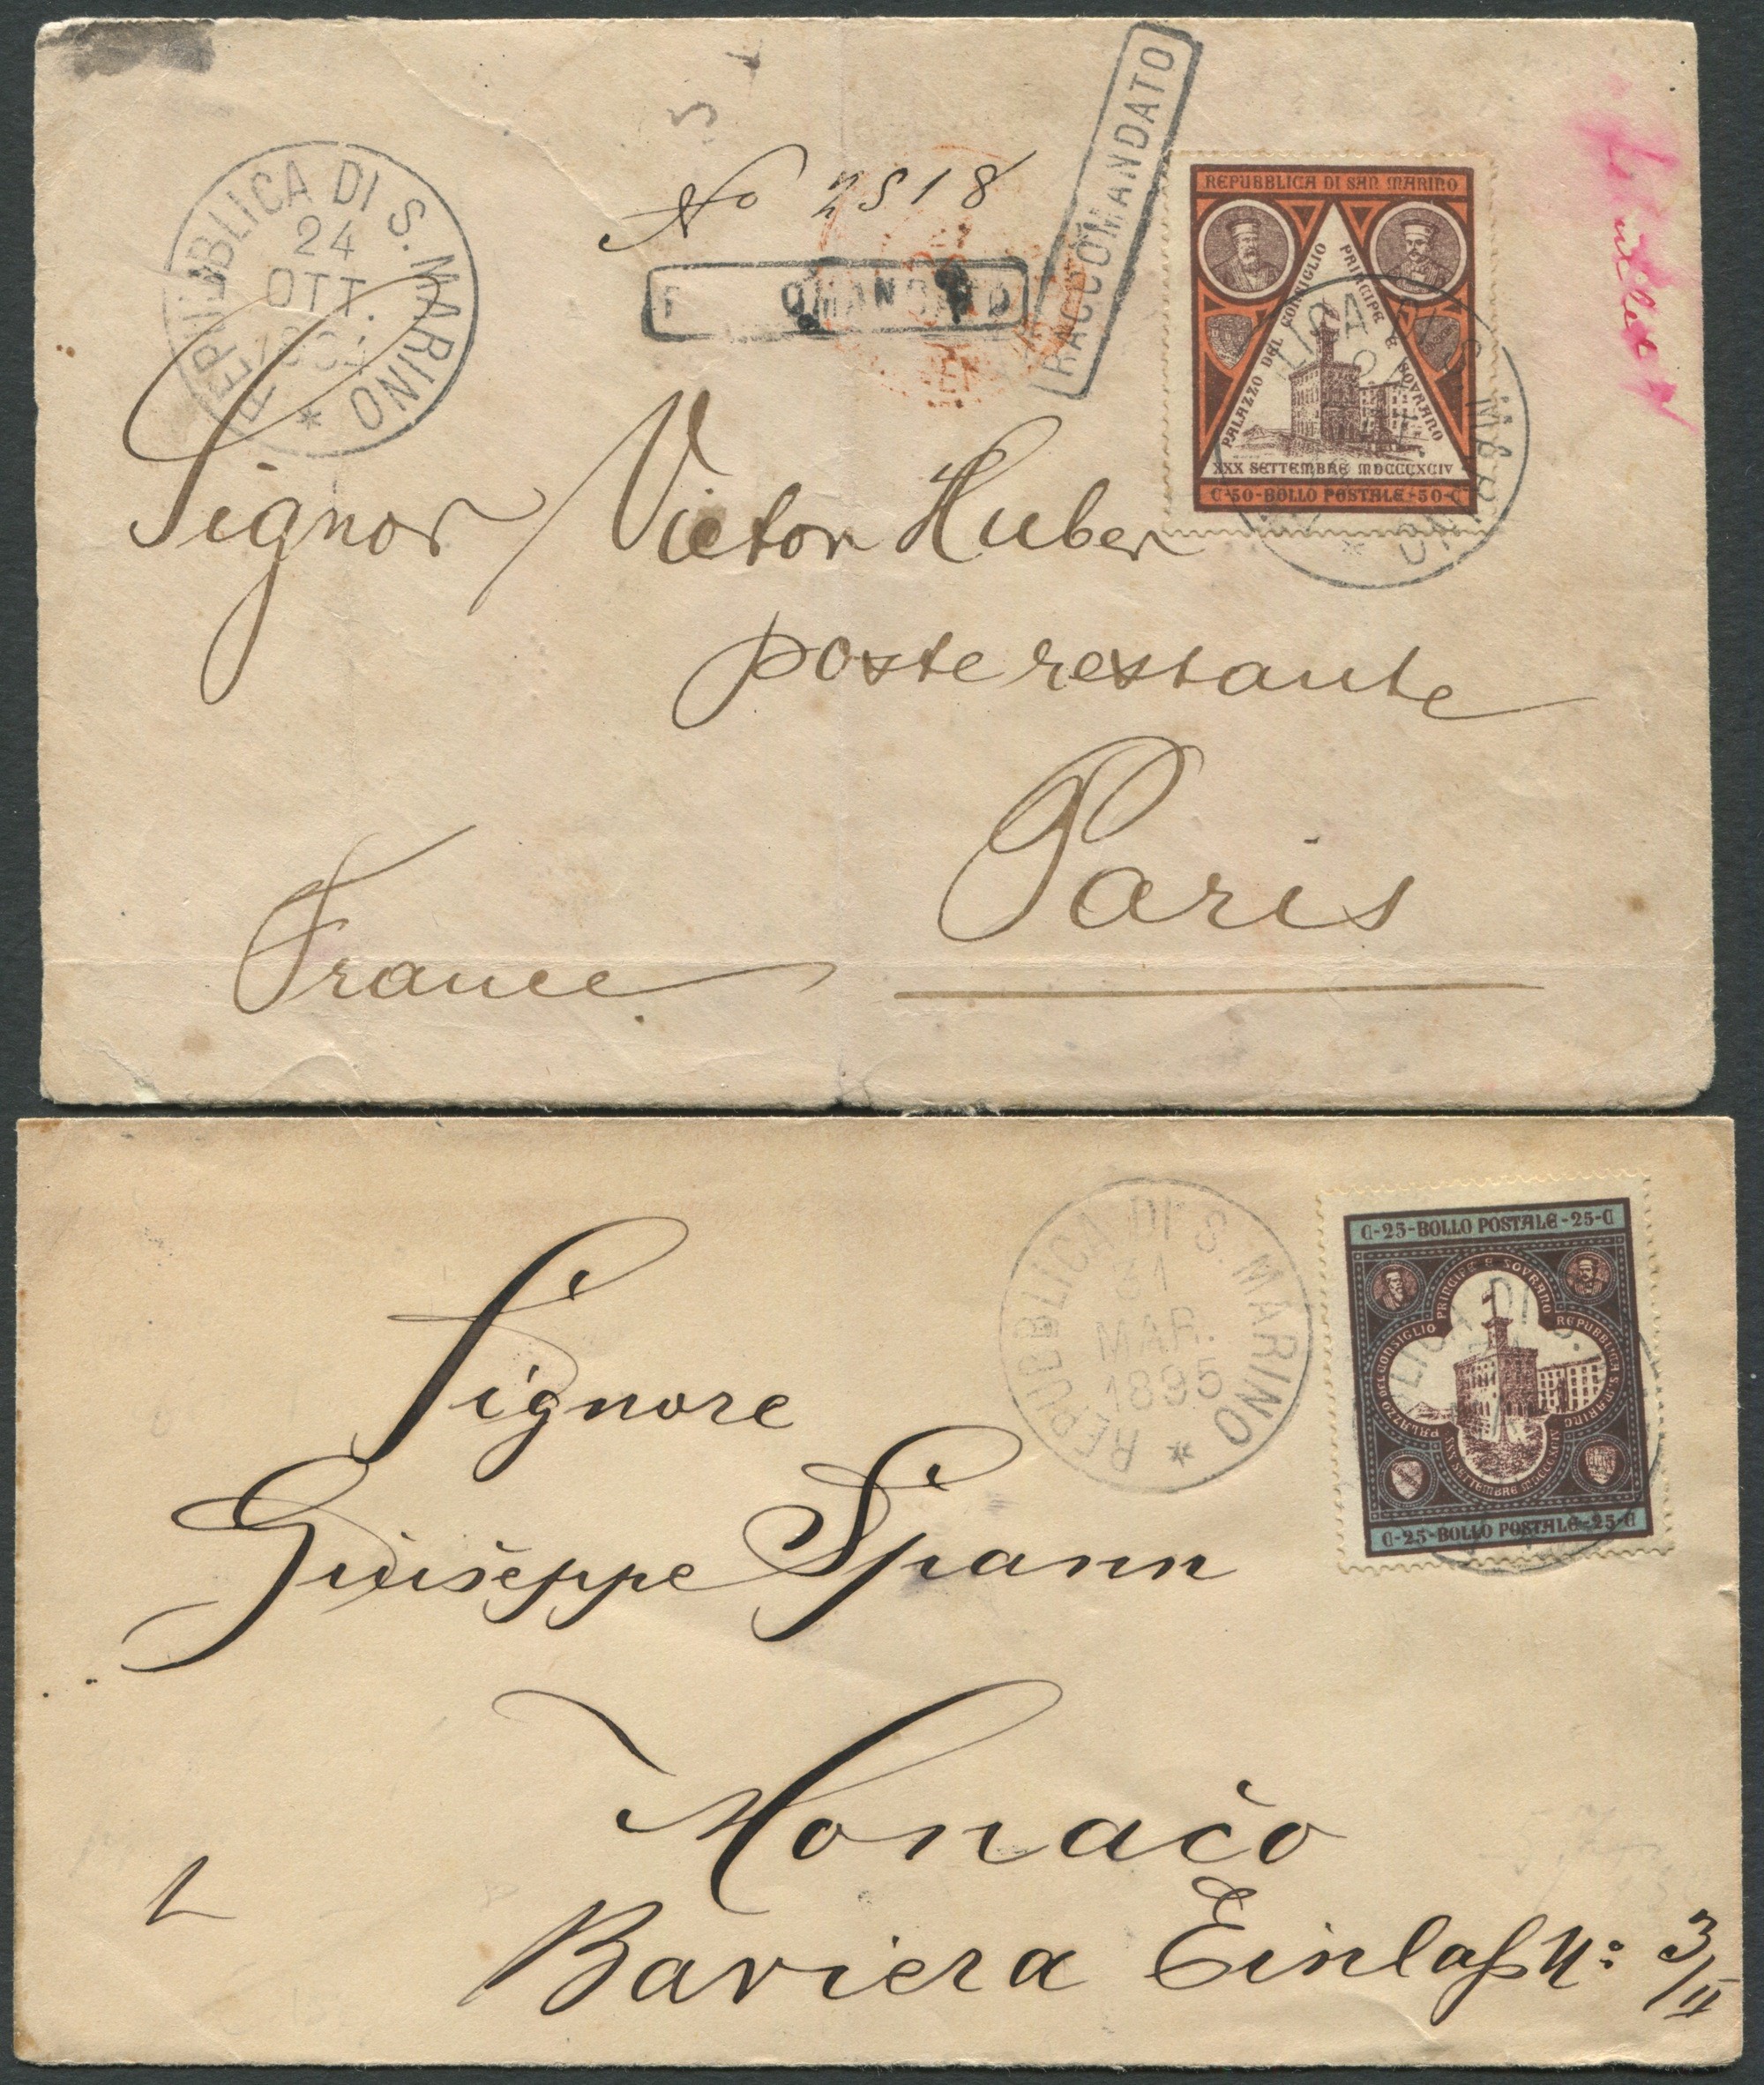 REPUBBLICA DI S. MARINO
24
OTT.
No 2518
RACCOMANDATO
REPUBBLICA DI SAN MARINO
PALAZZO DEL CONSIGLIO PRINCIPE E SOVRANO
XXX SETTEMBRE MDCCCXCIV
C-50-BOLLO POSTALE-50-C
Signor Victor Huber
poste restante
Paris
France
REPUBBLICA DI S. MARINO
31
MAR.
1895
C-25-BOLLO POSTALE-25-C
PALAZZO DEL CONSIGLIO PRINCIPE E SOVRANO REPUBBLICA S. MARINO
XXX SETTEMBRE
C-25-BOLLO POSTALE-25-C
Signore
Giuseppe Spann
Monaco
Baviera Einlaß N: 3/II